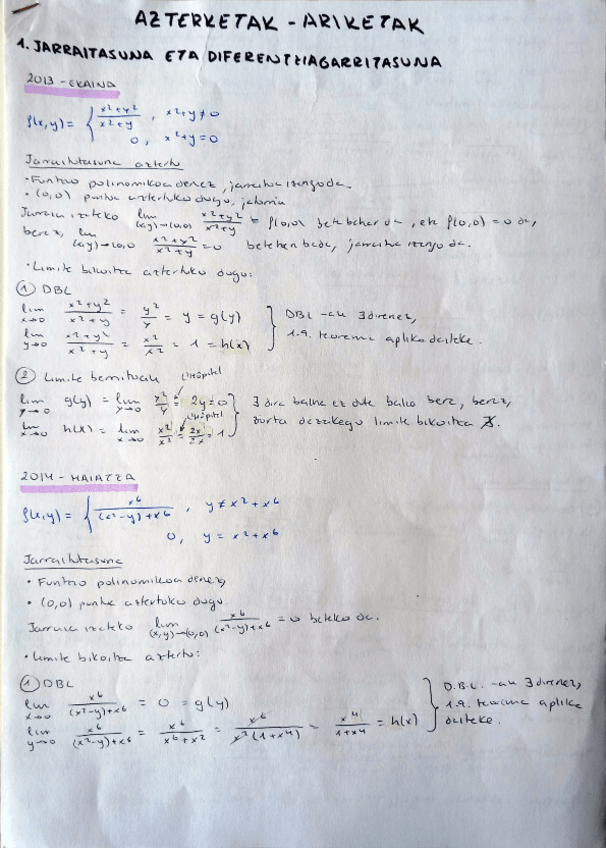 AZTERKETAK - ARIKETAK
1. JARRAITASUNA ETA DIFERENTZIAGARRITASUNA
2013 - EKAINA
f(x,y) = { x²+y² / x²+y , x²+y ≠ 0
0, x²+y = 0
Jarraitutasuna aztertu
• Funtzio polinomikoa denez, jarraitua izango da.
• (0,0) puntua aztertuko dugu,
Jarraia izateko lim (x,y)→(0,0) x²+y² / x²+y = f(0,0) bete behar da, eta f(0,0) = 0 da,
beraz, lim (x,y)→(0,0 x²+y² / x²+y = 0 betetzen bada, jarraitua izango da.
• Limite bikoitza aztertuko dugu:
① DBL
lim x→0 x²+y² / x²+y = y² / y = y = g(y)
lim y→0 x²+y² / x²+y = x² / x² = 1 = h(x)
} DBL-ak ∃ direnez,
1.9. teorema aplika daiteke.
② Limite berrituak
L'Hôpital
lim y→0 g(y) = lim y→0 y² / y = 2y = 0
L'Hôpital
lim x→0 h(x) = lim x→0 x² / x² = 2x / 2x = 1
} ∃ dira baina ez dute balio bera, beraz,
dezakegu limite bikoitza ∄.
2014 - MAIATZA
f(x,y) = { x⁶ / (x²-y)+x⁶ , y ≠ x² + x⁶
0, y = x² + x⁶
Jarraitutasuna
• Funtzio polinomikoa denez,
• (0,0) puntua aztertuko dugu
Jarraia izateko lim (x,y)→(0,0) x⁶ / (x²-y)+x⁶ = 0 beteko da.
• Limite bikoitza aztertu:
① DBL
lim x→0 x⁶ / (x²-y)+x⁶ = 0 = g(y)
lim y→0 x⁶ / (x²-y)+x⁶ = x⁶ / x⁶+x² = x⁶ / x²(1+x⁴) = x⁴ / 1+x⁴ = h(x)
} D.B.L.-ak ∃ direnez,
1.9. teorema aplika
daiteke.